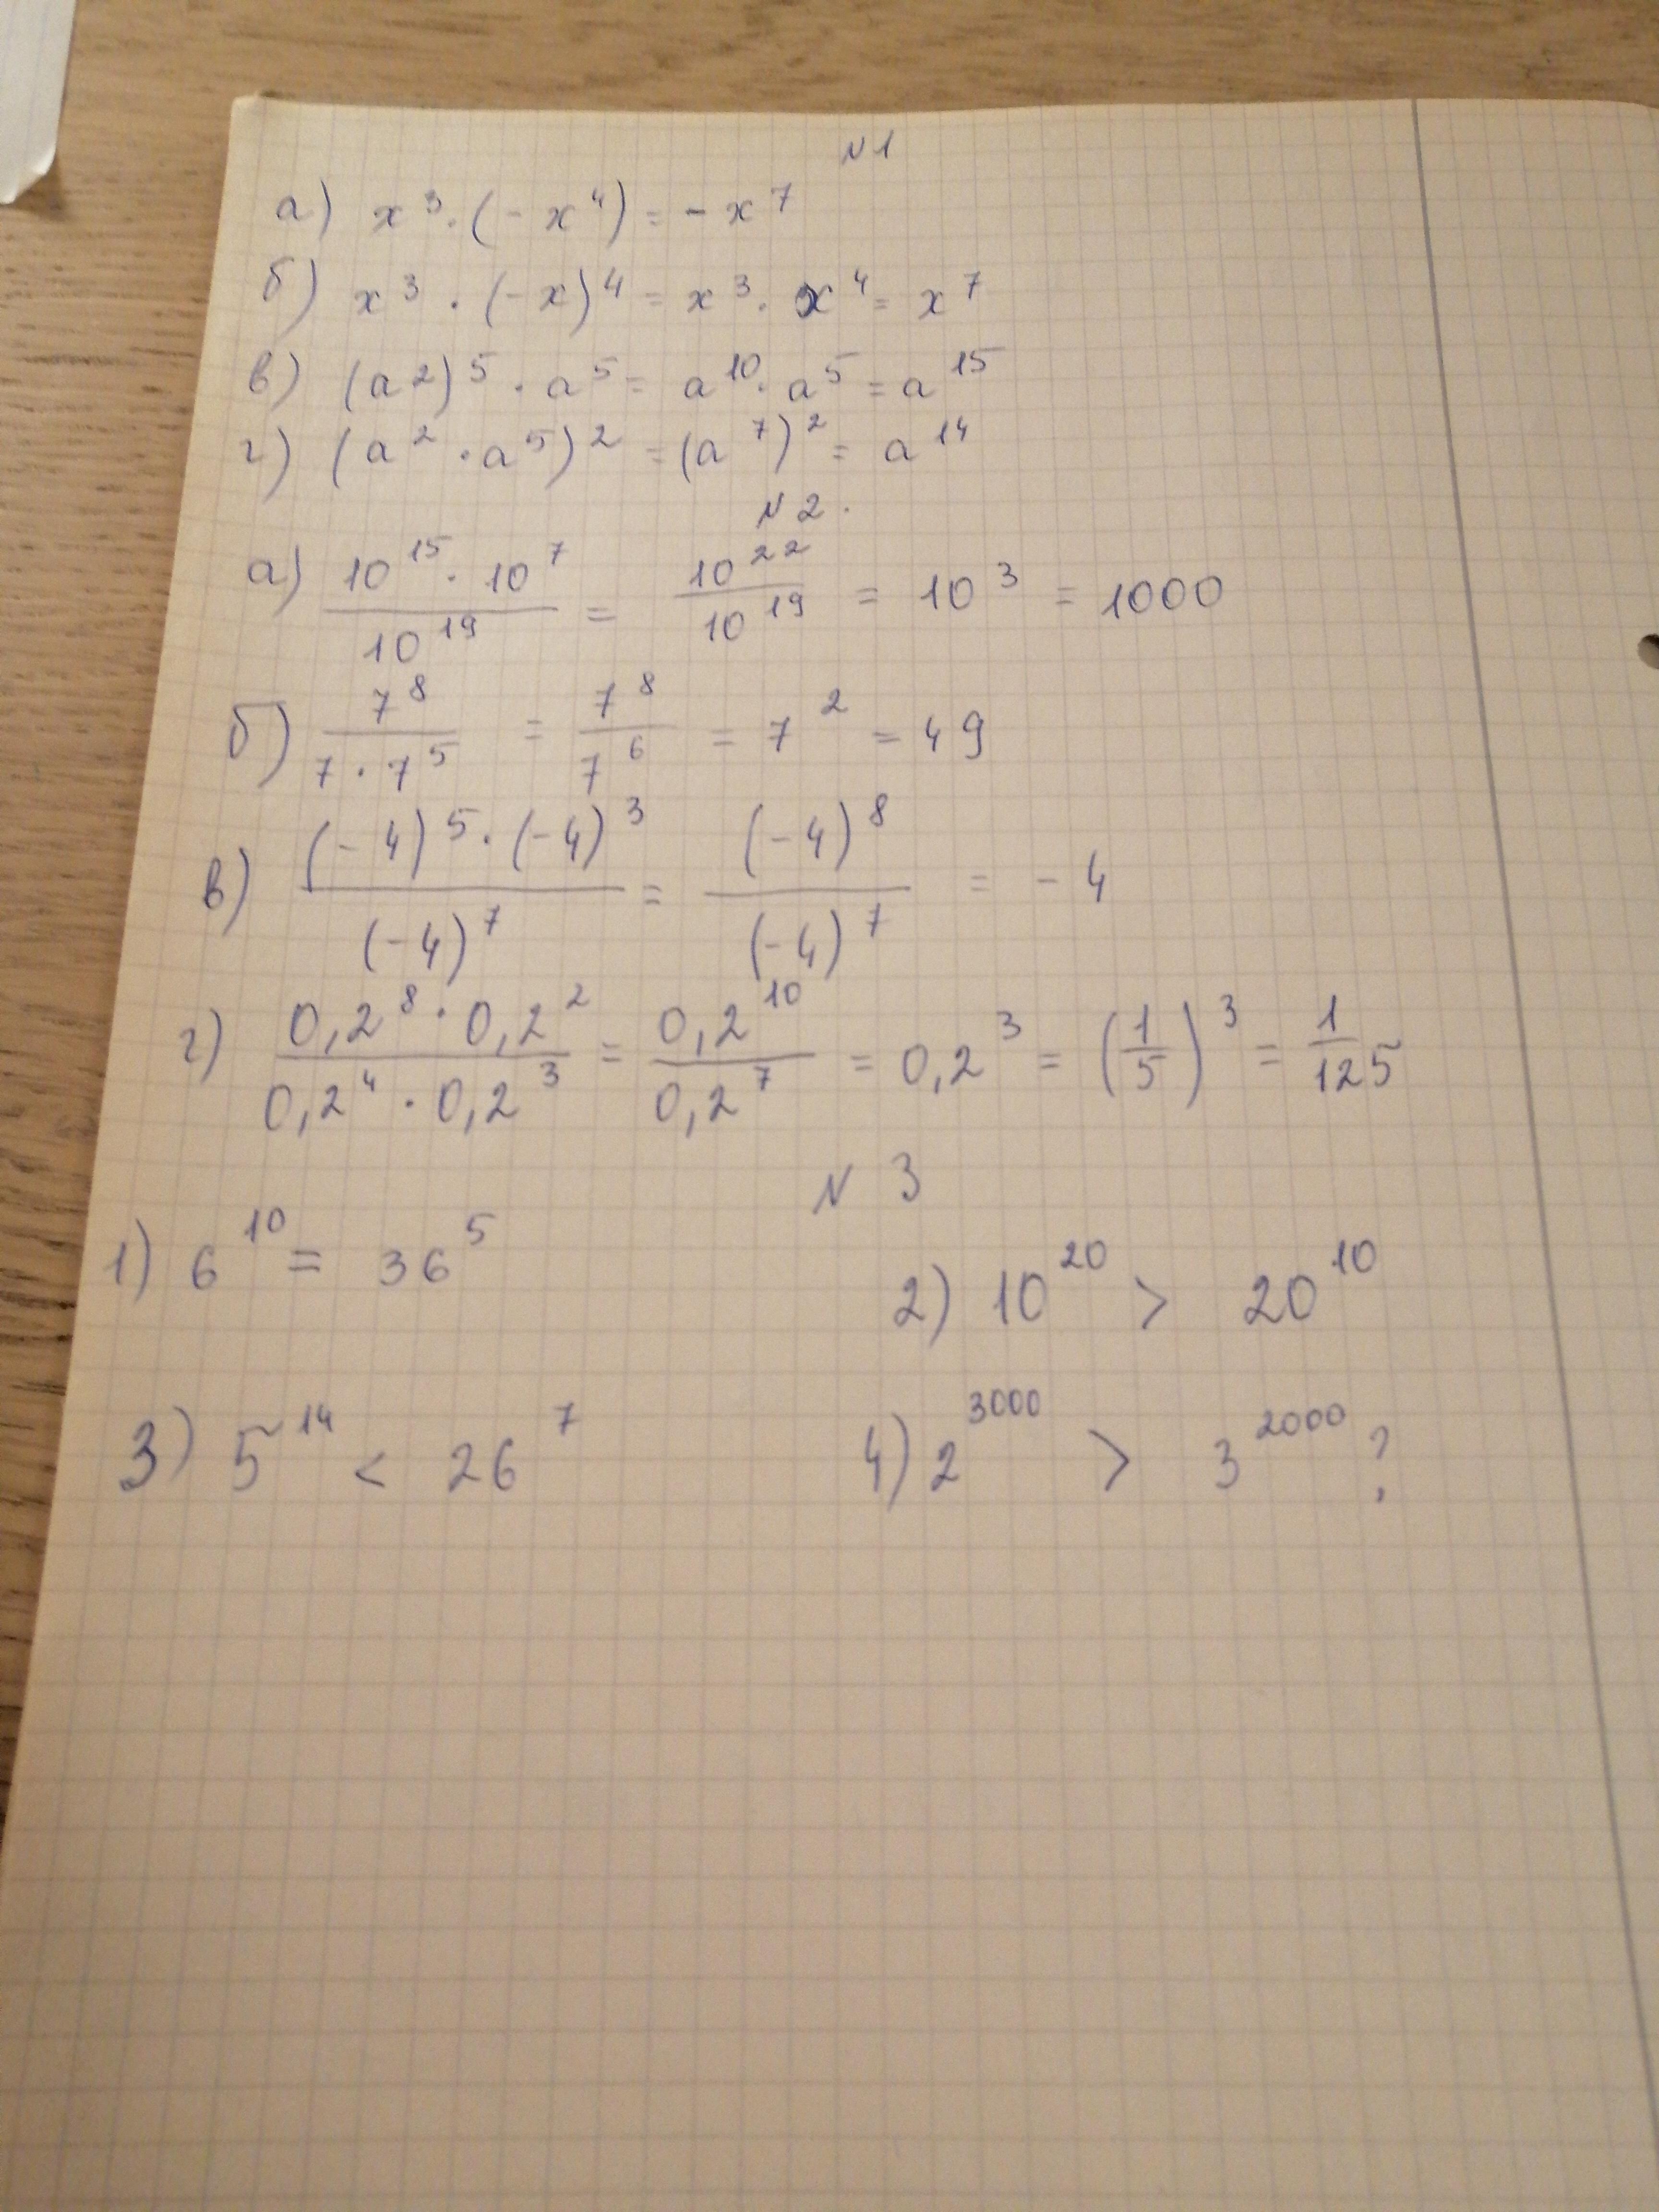 N 1
а) x³ · (- x⁴) = - x⁷
б) x³ · (- x)⁴ = x³ · x⁴ = x⁷
в) (a²)⁵ · a⁵ = a¹⁰ · a⁵ = a¹⁵
г) (a² · a⁵)² = (a⁷)² = a¹⁴
N 2.
а) (10¹⁵ · 10⁷)/10¹⁹ = 10²²/10¹⁹ = 10³ = 1000
б) 7⁸/(7 · 7⁵) = 7⁸/7⁶ = 7² = 49
в) ((-4)⁵ · (-4)³)/(-4)⁷ = (-4)⁸/(-4)⁷ = - 4
г) (0,2⁸ · 0,2²)/(0,2⁴ · 0,2³) = 0,2¹⁰/0,2⁷ = 0,2³ = (1/5)³ = 1/125
N 3
1) 6¹⁰ = 36⁵ 2) 10²⁰ > 20¹⁰
3) 5¹⁴ < 26⁷ 4) 2³⁰⁰⁰ > 3²⁰⁰⁰ ?